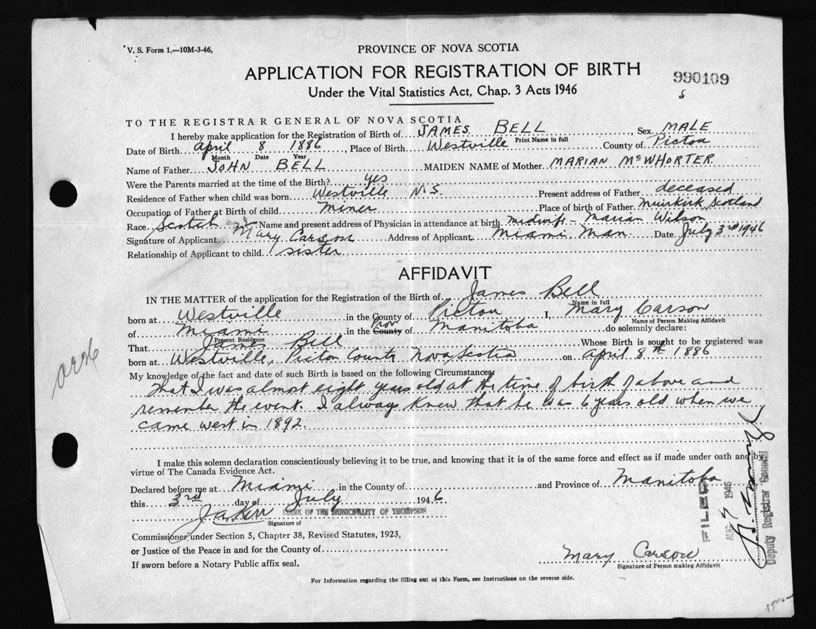 V. S. Form 1.—10M-3-46,
PROVINCE OF NOVA SCOTIA
APPLICATION FOR REGISTRATION OF BIRTH
990109
Under the Vital Statistics Act, Chap. 3 Acts 1946
TO THE REGISTRAR GENERAL OF NOVA SCOTIA
I hereby make application for the Registration of Birth of JAMES BELL, Sex MALE
Print Name in full
Date of Birth April 8 1886, Place of Birth Westville County of Pictou
Month Date Year
Name of Father JOHN BELL MAIDEN NAME of Mother MARIAN McWHORTER
Were the Parents married at the time of the Birth? yes
Residence of Father when child was born Westville N.S. Present address of Father deceased
Occupation of Father at Birth of child Miner Place of birth of Father Muirkirk, Scotland
Race Scotch Name and present address of Physician in attendance at birth midwife - Marian Wilson
Signature of Applicant Mary Carson Address of Applicant Miami, Man. Date July 3rd 1946
Relationship of Applicant to child sister
AFFIDAVIT
IN THE MATTER of the application for the Registration of the Birth of James Bell
Name in full
born at Westville in the County of Pictou I, Mary Carson
Name of Person Making Affidavit
of Miami in the County Prov of Manitoba do solemnly declare:
Present Residence
That James Bell Whose Birth is sought to be registered was
born at Westville, Pictou County Nova Scotia on April 8th 1886
My knowledge of the fact and date of such Birth is based on the following Circumstances:
That I was almost eight years old at the time of birth of above and
remember the event. I always knew that he was 6 years old when we
came west in 1892
I make this solemn declaration conscientiously believing it to be true, and knowing that it is of the same force and effect as if made under oath and by
virtue of The Canada Evidence Act.
Declared before me at Miami in the County of and Province of Manitoba
this 3rd day of July 1946
CLERK OF THE MUNICIPALITY OF THOMPSON
Signature of
Commissioner under Section 5, Chapter 38, Revised Statutes, 1923,
or Justice of the Peace in and for the County of
If sworn before a Notary Public affix seal.
Mary Carson
Signature of Person making Affidavit
For Information regarding the filling out of this Form, see Instructions on the reverse side.
FILED
AUG 7 1946
Deputy Registrar General